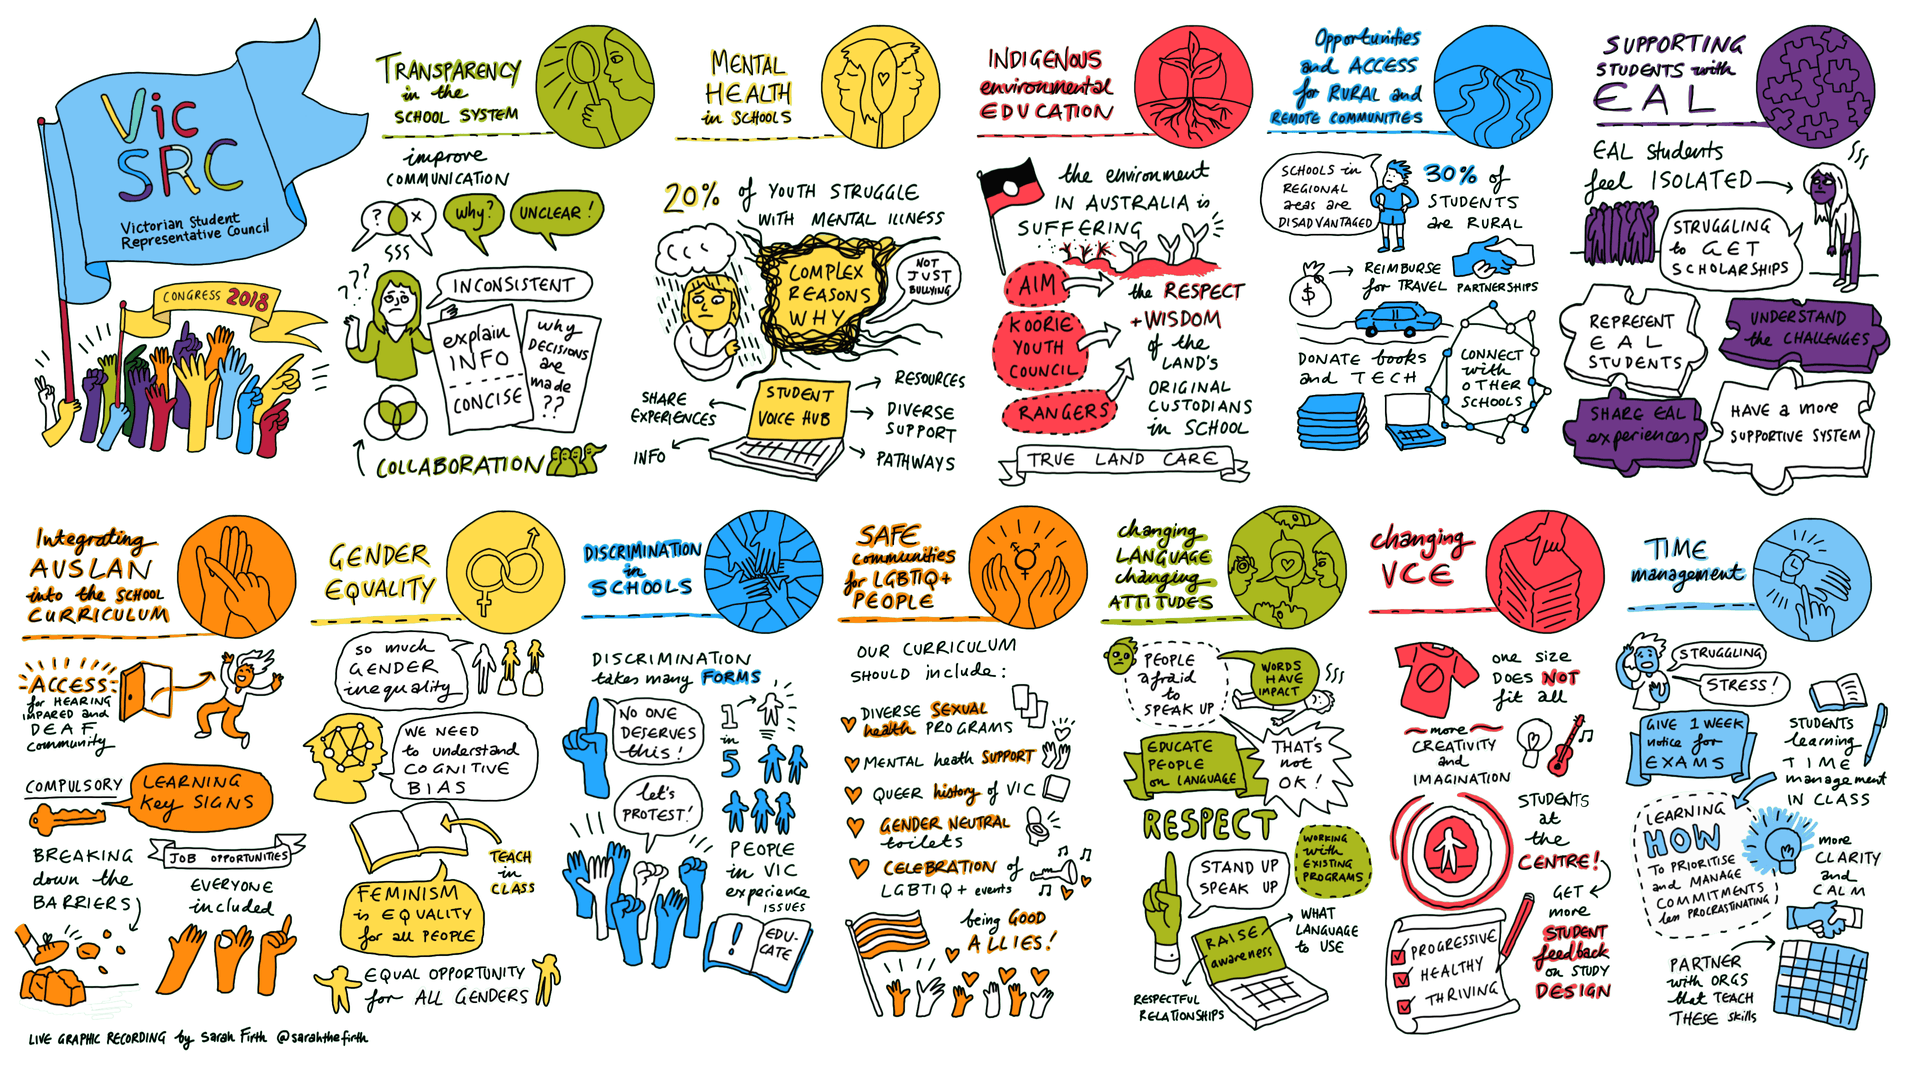 Vic
SRC
Victorian Student
Representative Council
CONGRESS 2018
TRANSPARENCY
in the
SCHOOL SYSTEM
improve
COMMUNICATION
?
x
why?
UNCLEAR!
? ? ?
INCONSISTENT
explain
INFO
CONCISE
why
DECISIONS
are
made
??
COLLABORATION
MENTAL
HEALTH
in SCHOOLS
20% of YOUTH STRUGGLE
WITH MENTAL ILLNESS
COMPLEX
REASONS
WHY
NOT
JUST
BULLYING
STUDENT
VOICE HUB
SHARE
EXPERIENCES
INFO
RESOURCES
DIVERSE
SUPPORT
PATHWAYS
INDIGENOUS
environmental
EDUCATION
the environment
IN AUSTRALIA is
SUFFERING
AIM
KOORIE
YOUTH
COUNCIL
RANGERS
the RESPECT
+ WISDOM
of the
LAND'S
ORIGINAL
CUSTODIANS
in SCHOOL
TRUE LAND CARE
Opportunities
and ACCESS
for RURAL and
REMOTE COMMUNITIES
SCHOOLS in
REGIONAL
areas are
DISADVANTAGED
30% of
STUDENTS
are RURAL
$
REIMBURSE
for TRAVEL
PARTNERSHIPS
DONATE books
and TECH
CONNECT
with
OTHER
SCHOOLS
SUPPORTING
STUDENTS with
EAL
EAL students
feel ISOLATED
STRUGGLING
to GET
SCHOLARSHIPS
REPRESENT
EAL
STUDENTS
UNDERSTAND
the CHALLENGES
SHARE EAL
experiences
HAVE a more
SUPPORTIVE SYSTEM
Integrating
AUSLAN
into the SCHOOL
CURRICULUM
ACCESS
for HEARING
IMPARED and
DEAF
community
COMPULSORY
LEARNING
key SIGNS
JOB OPPORTUNITIES
BREAKING
down the
BARRIERS
EVERYONE
included
GENDER
EQUALITY
so much
GENDER
inequality
WE NEED
to understand
COGNITIVE
BIAS
TEACH
in
CLASS
FEMINISM
is EQUALITY
for all PEOPLE
EQUAL OPPORTUNITY
for ALL GENDERS
DISCRIMINATION
in
SCHOOLS
DISCRIMINATION
takes many FORMS
NO ONE
DESERVES
this!
let's
PROTEST!
1
in
5
PEOPLE
in VIC
experience
ISSUES
!
EDU-
CATE
SAFE
communities
for LGBTIQ+
PEOPLE
OUR CURRICULUM
SHOULD include:
DIVERSE SEXUAL
health PROGRAMS
MENTAL heath SUPPORT
QUEER history of VIC
GENDER NEUTRAL
toilets
CELEBRATION of
LGBTIQ+ events
being GOOD
ALLIES!
changing
LANGUAGE
changing
ATTITUDES
PEOPLE
afraid
to
SPEAK UP
WORDS
HAVE
IMPACT
EDUCATE
PEOPLE
on LANGUAGE
THAT'S
not
OK!
RESPECT
STAND UP
SPEAK UP
WORKING
with
EXISTING
PROGRAMS
RAISE
awareness
WHAT
LANGUAGE
to USE
RESPECTFUL
RELATIONSHIPS
changing
VCE
one size
DOES NOT
fit all
more
CREATIVITY
and
IMAGINATION
STUDENTS
at
the
CENTRE!
GET
more
STUDENT
feedback
on STUDY
DESIGN
PROGRESSIVE
HEALTHY
THRIVING
TIME
management
STRUGGLING
STRESS!
GIVE 1 WEEK
notice for
EXAMS
STUDENTS
learning
TIME
management
IN CLASS
LEARNING
HOW
TO PRIORITISE
and MANAGE
COMMITMENTS
less PROCRASTINATING
more
CLARITY
and
CALM
PARTNER
with ORGS
that TEACH
THESE skills
LIVE GRAPHIC RECORDING by Sarah Firth @sarahthefirth